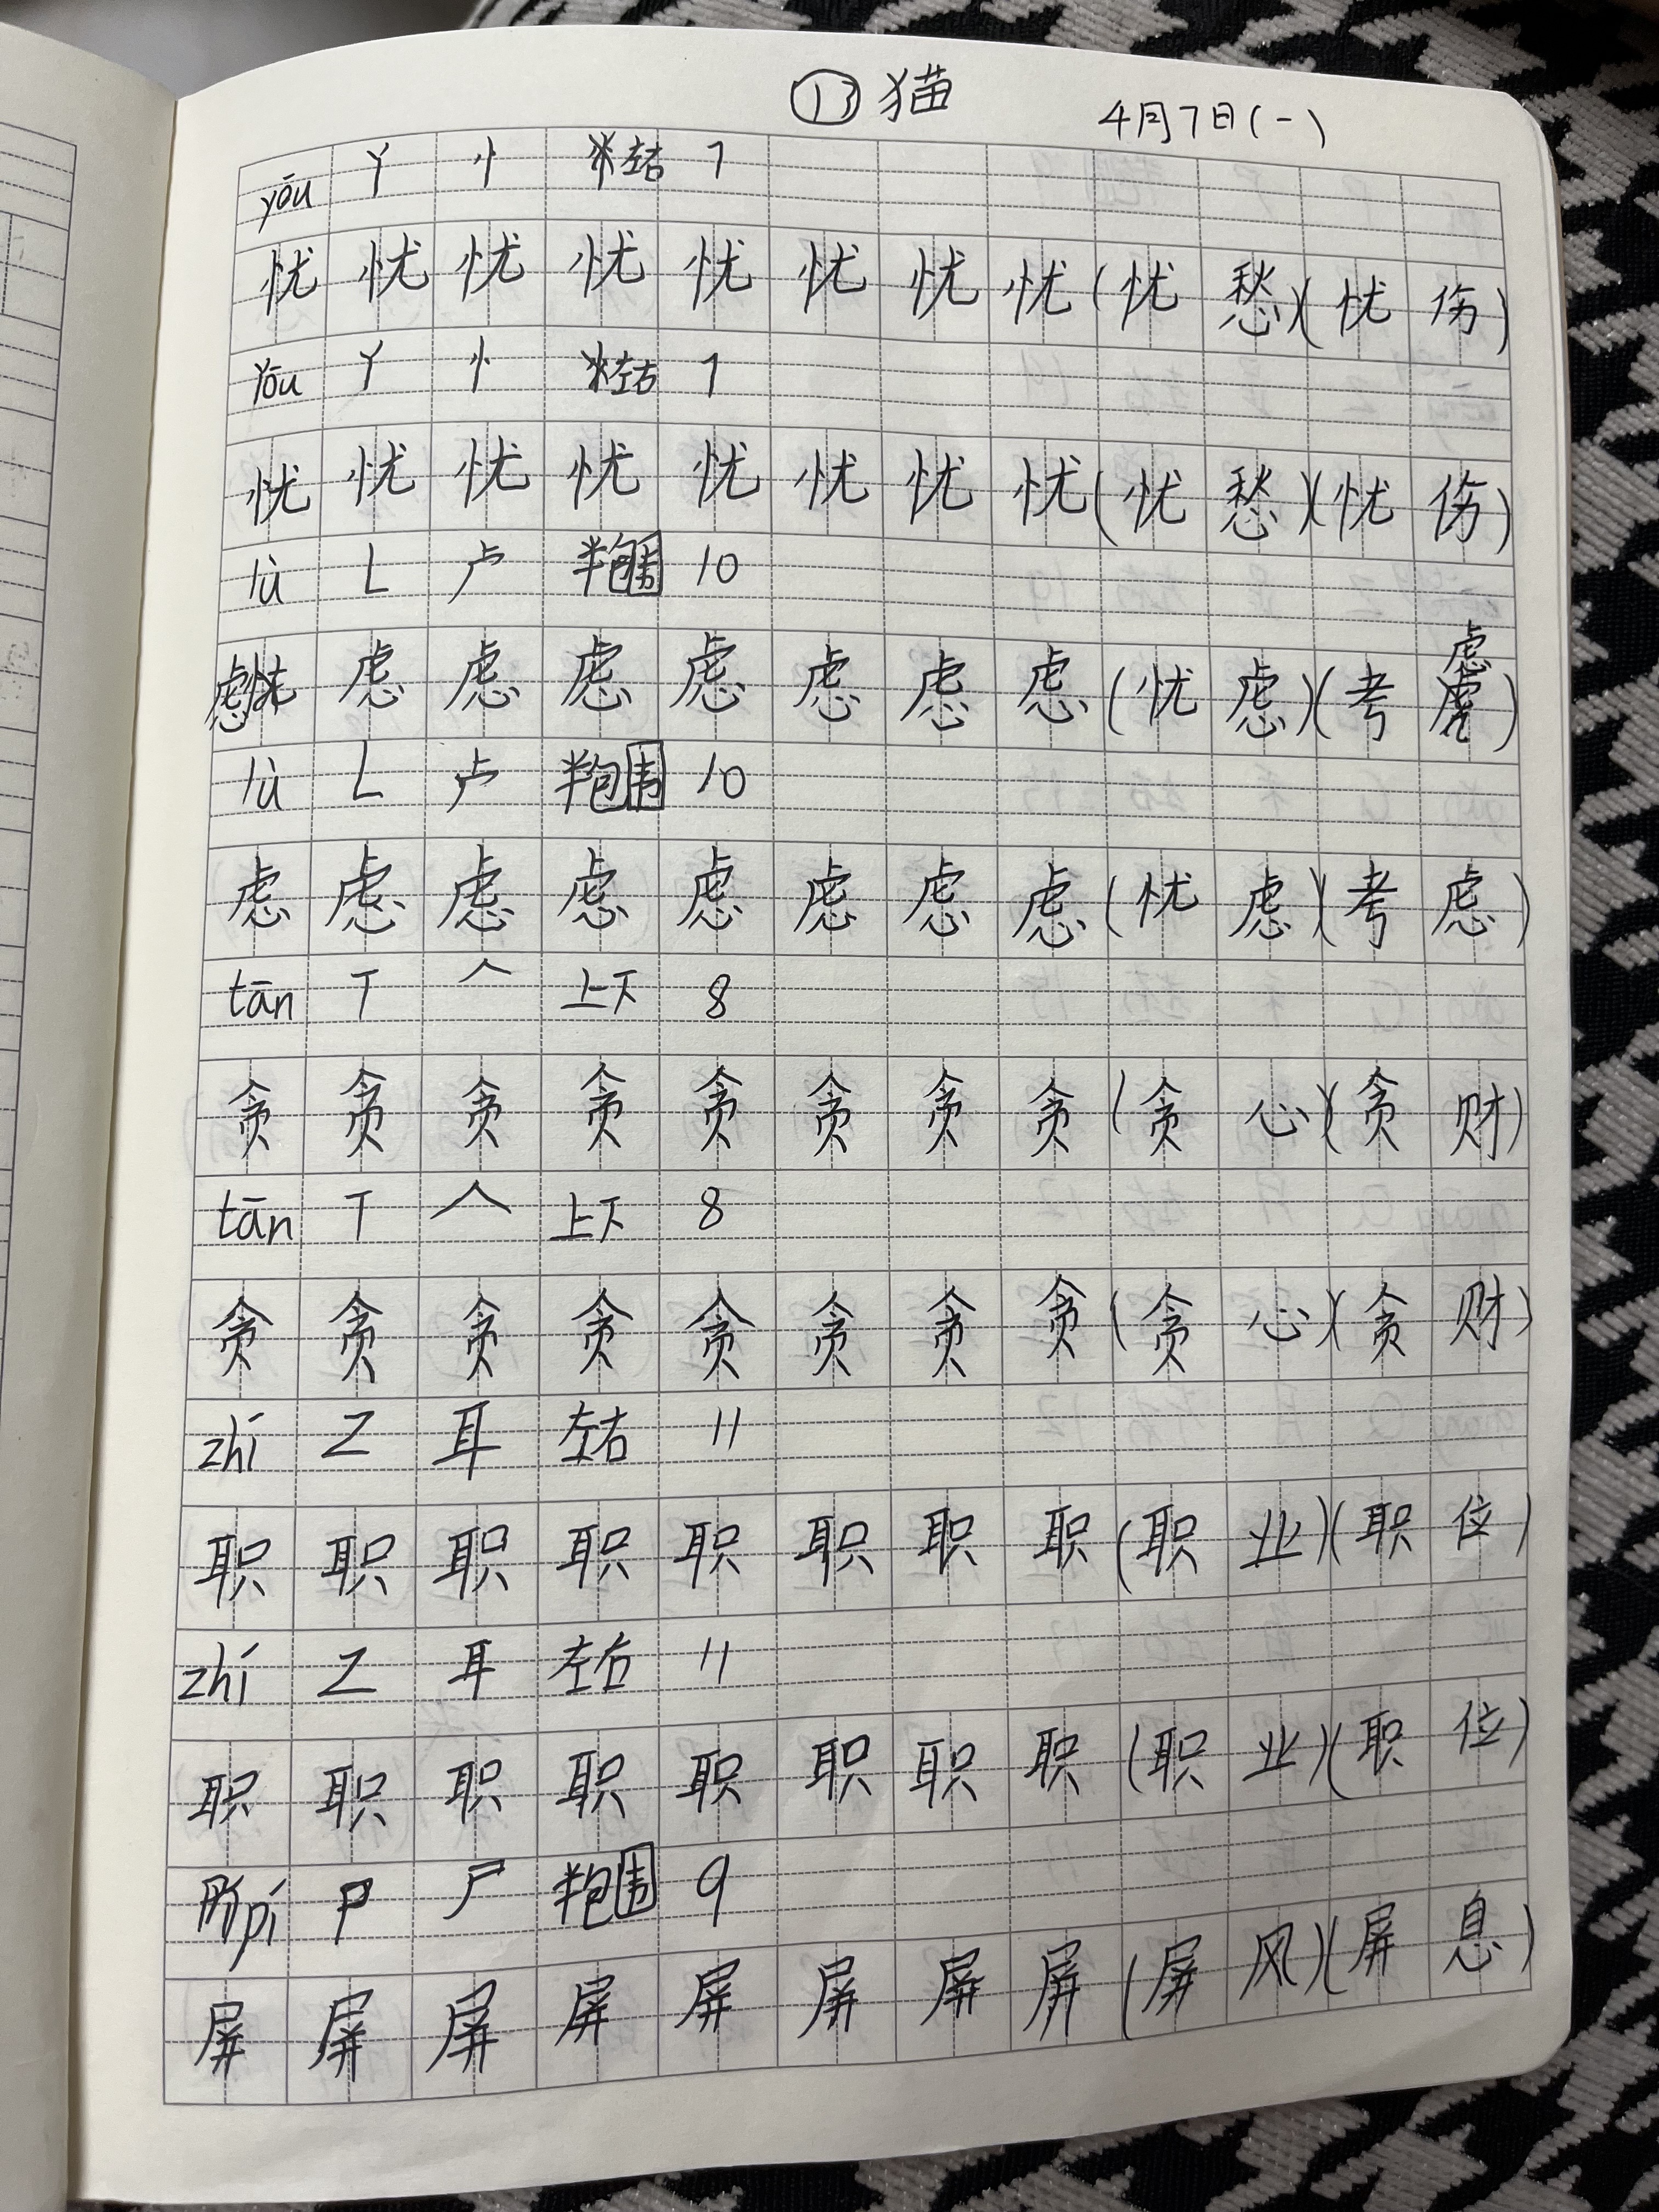 ⑬猫 4月7日(一)
yōu 丫 忄 左右 7
忧 忧 忧 忧 忧 忧 忧 忧 (忧 愁)(忧 伤)
yōu 丫 忄 左右 7
忧 忧 忧 忧 忧 忧 忧 忧 (忧 愁)(忧 伤)
lù L 虍 半包围 10
虑 虑 虑 虑 虑 虑 虑 虑 (忧 虑)(考 虑)
lù L 虍 半包围 10
虑 虑 虑 虑 虑 虑 虑 虑 (忧 虑)(考 虑)
tān T 人 上下 8
贪 贪 贪 贪 贪 贪 贪 贪 (贪 心)(贪 财)
tān T 人 上下 8
贪 贪 贪 贪 贪 贪 贪 贪 (贪 心)(贪 财)
zhí Z 耳 左右 11
职 职 职 职 职 职 职 职 (职 业)(职 位)
zhí Z 耳 左右 11
职 职 职 职 职 职 职 职 (职 业)(职 位)
pí P 尸 半包围 9
屏 屏 屏 屏 屏 屏 屏 屏 (屏 风)(屏 息)